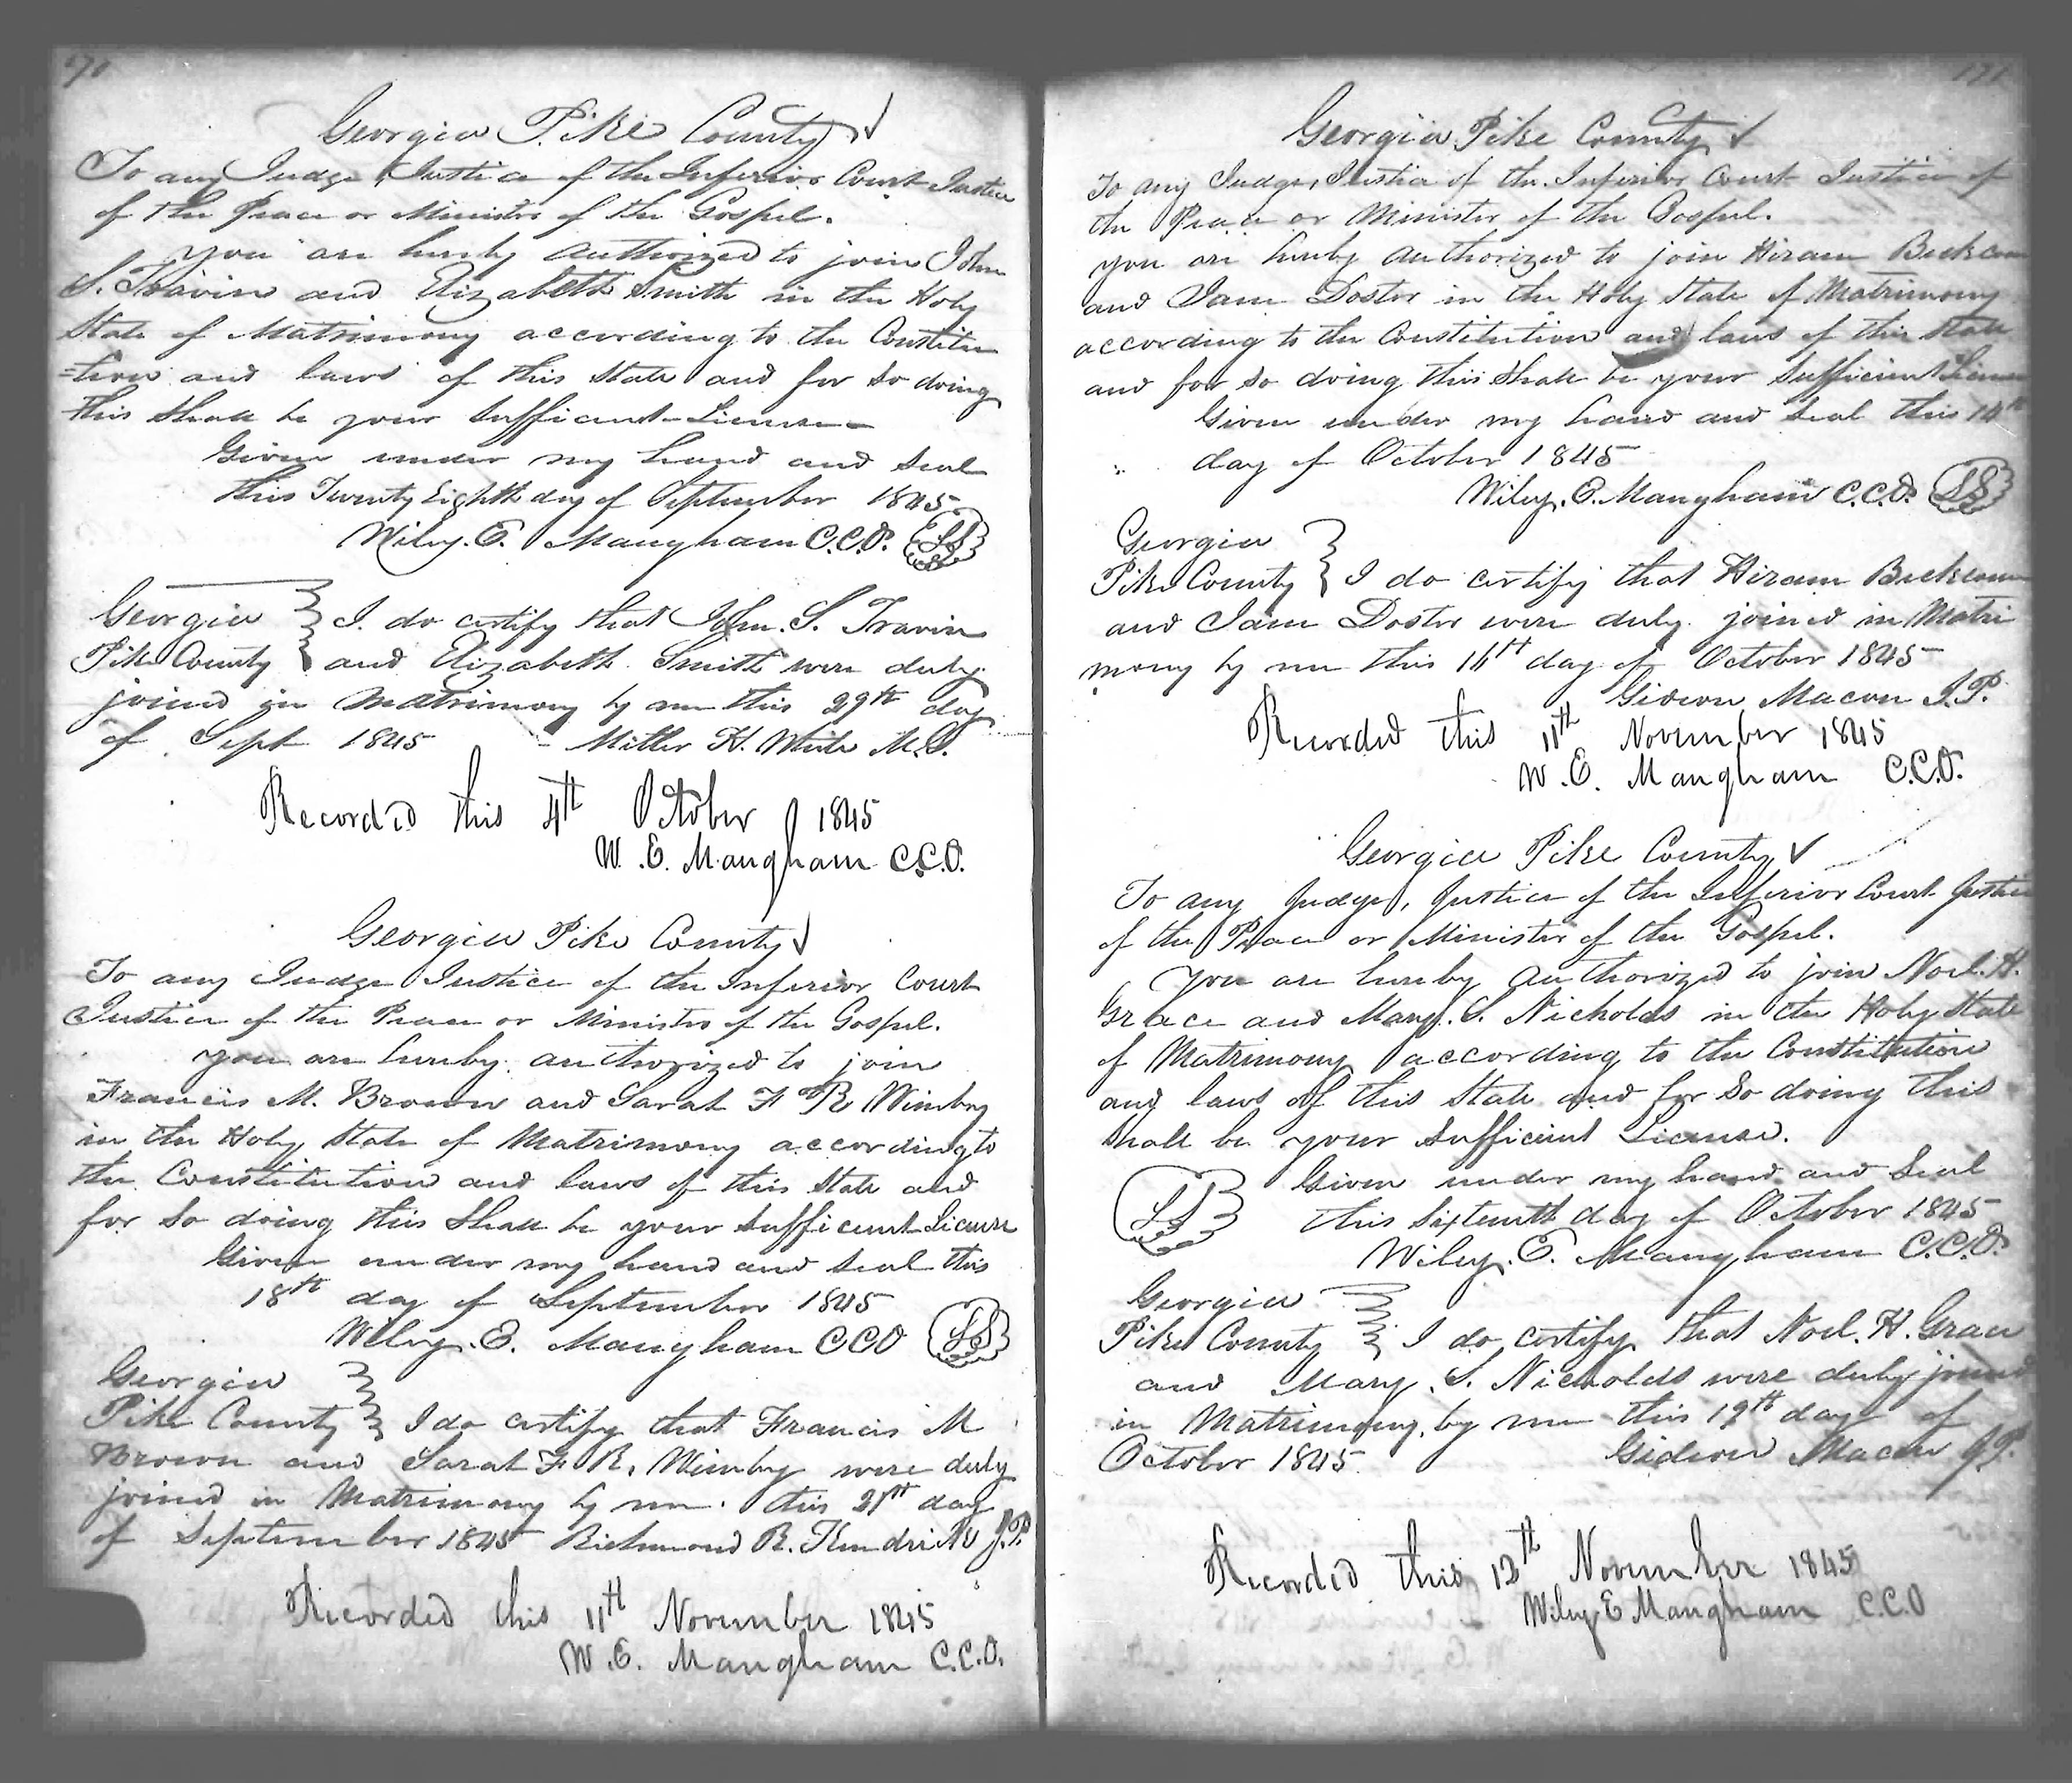 Georgia Pike County
To any Judge, Justice of the Inferior Court Justice
of the Peace or Minister of the Gospel.
you are hereby authorized to join John
S. Travis and Elizabeth Smith in the Holy
State of Matrimony according to the Constitu
=tion and laws of this State and for so doing
this shall be your sufficient License
Given under my hand and seal
this Twenty Eighth day of September 1845.
Wiley. E. Mangham C.C.O. LS
Georgia
Pike County
I. do certify that John. S. Travis
and Elizabeth Smith were duly
joined in matrimony by me this 29th day
of Sept 1845 - Miller H. White M.G.
Recorded this 4th October 1845
W. E. Mangham C.C.O.
Georgia Pike County
To any Judge Justice of the Inferior Court
Justice of the Peace or Minister of the Gospel.
you are hereby authorized to join
Francis M. Brown and Sarah F R Wimby
in the Holy State of Matrimony according to
the Constitution and laws of this State and
for so doing this shall be your sufficient License
Given under my hand and seal this
18th day of September 1845
Wiley. E. Mangham CCO LS
Georgia
Pike County
I do certify that Francis M
Brown and Sarah F R. Wimby were duly
joined in Matrimony by me. this 21st day
of September 1845 Richmond R. J.P.
Recorded this 11th November 1845
W. E. Mangham C.C.O.
171
Georgia Pike County
To any Judge, Justice of the Inferior Court Justice of
the Peace or Minister of the Gospel.
you are hereby authorized to join Hiram
and Jane Doster in the Holy State of Matrimony
according to the Constitution and laws of this State
and for so doing this shall be your sufficient License
Given under my hand and seal this
day of October 1845
Wiley. E. Mangham C.C.O. LS
Georgia
Pike County
I do certify that Hiram
and Jane Doster were duly joined in Matri
mony by me this day of October 1845
Gideon Macon J.P.
Recorded this 11th November 1845
W. E. Mangham C.C.O.
Georgia Pike County
To any Judge, Justice of the Inferior Court Justice
of the Peace or Minister of the Gospel.
You are hereby authorized to join Noel. H.
Grace and Mary. S. Nicholds in the Holy State
of Matrimony according to the Constitution
and laws of this State and for so doing this
shall be your sufficient License.
LS Given under my hand and seal
this sixteenth day of October 1845
Wiley. E. Mangham C.C.O.
Georgia
Pike County
I do certify that Noel. H. Grace
and Mary. S. Nicholds were duly joined
in Matrimony, by me this 19th day of
October 1845. Gideon Macon J.P.
Recorded this 12th November 1845
Wiley E Mangham C.C.O